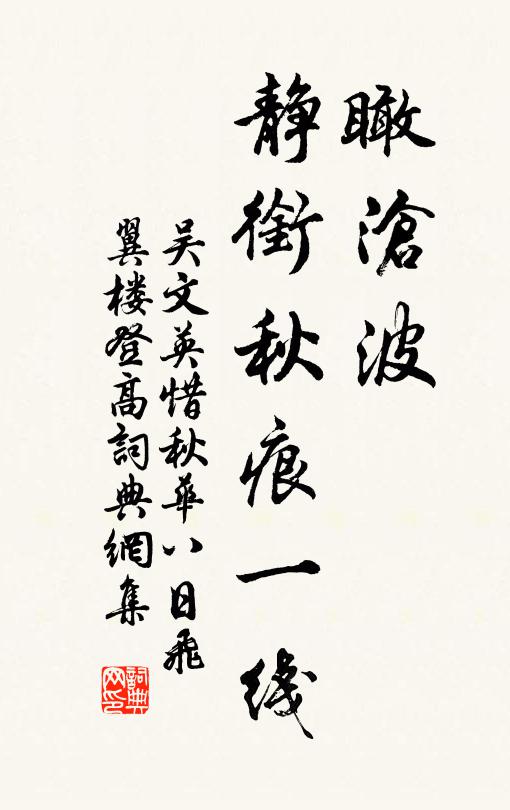 瞰滄波
静銜秋痕一线
吴文英惜秋華八日飛
翼楼登高詞典網集
詞典网印